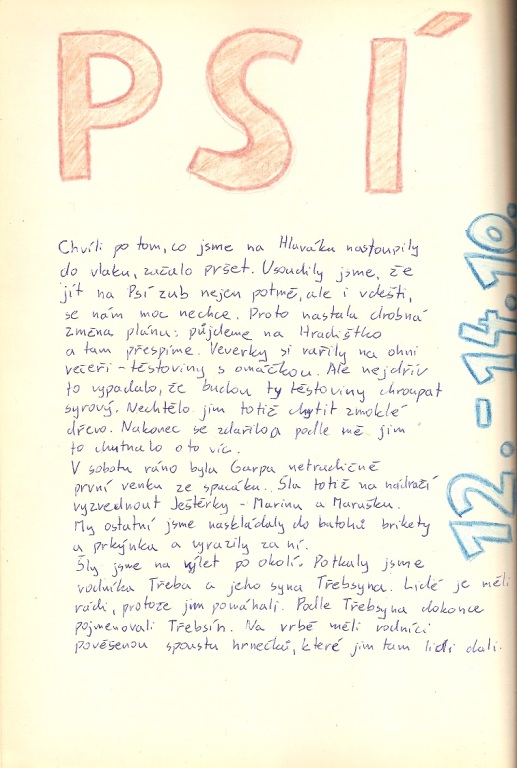 PSÍ
12. - 14. 10.
Chvíli po tom, co jsme na Hlaváku nastoupily
do vlaku, začalo pršet. Usoudily jsme, že
jít na Psí zub nejen potmě, ale i v dešti,
se nám moc nechce. Proto nastala drobná
změna plánu: půjdeme na Hradištko
a tam přespíme. Veverky si vařily na ohni
večeři - těstoviny s omáčkou. Ale nejdřív
to vypadalo, že budou ty těstoviny chroupat
syrový. Nechtělo jim totiž chytit zmoklé
dřevo. Nakonec se zdařilo a podle mě jim
to chutnalo o to víc.
V sobotu ráno byla Garpa netradičně
první venku ze spacáku. Šla totiž na nádraží
vyzvednout Ještěrky - Marinu a Marušku.
My ostatní jsme naskládaly do batohů brikety
a prkýnka a vyrazily za ní.
Šly jsme na výlet po okolí. Potkaly jsme
vodníka Třeba a jeho syna Třebsyna. Lidé je měli
rádi, protože jim pomáhali. Podle Třebsyna dokonce
pojmenovali Třebsín. Na vrbě měli vodníci
pověšenou spoustu hrnečků, které jim tam lidi dali.